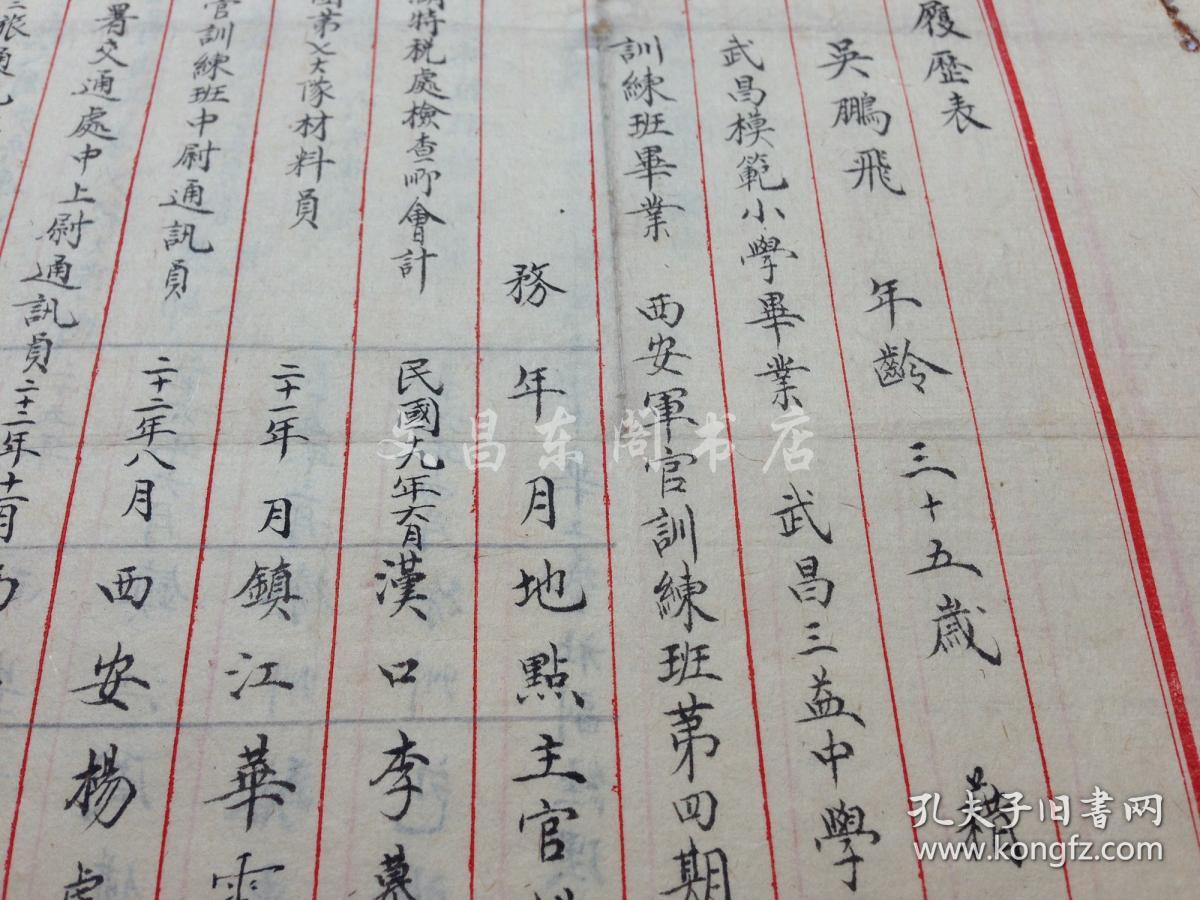 履歷表
吳鵬飛 年齡 三十五歲 籍
武昌模範小學畢業 武昌三益中學
訓練班畢業 西安軍官訓練班第四期
務 年月 地點 主官
特税處檢查所會計 民國九年六月 漢口 李
第七大隊材料員 二十一年 月 鎮江 華
訓練班中尉通訊員 二十二年八月 西安 楊
署交通處中上尉通訊員 二十二年十一月
昌东阁书店
孔夫子旧书网
www.kongfz.com